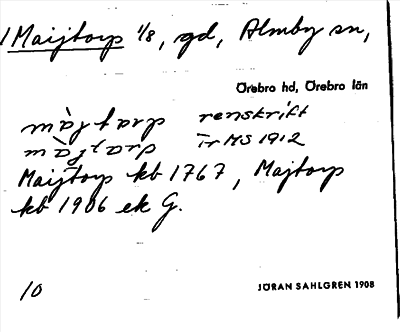 1 Maijtorp 1/8, gd, Almby sn,
Örebro hd, Örebro län
renskrift
ÏrMS 1912
Maijtorp kb 1767, Majtorp
kb 1906 ek G.
10
JÖRAN SAHLGREN 1908